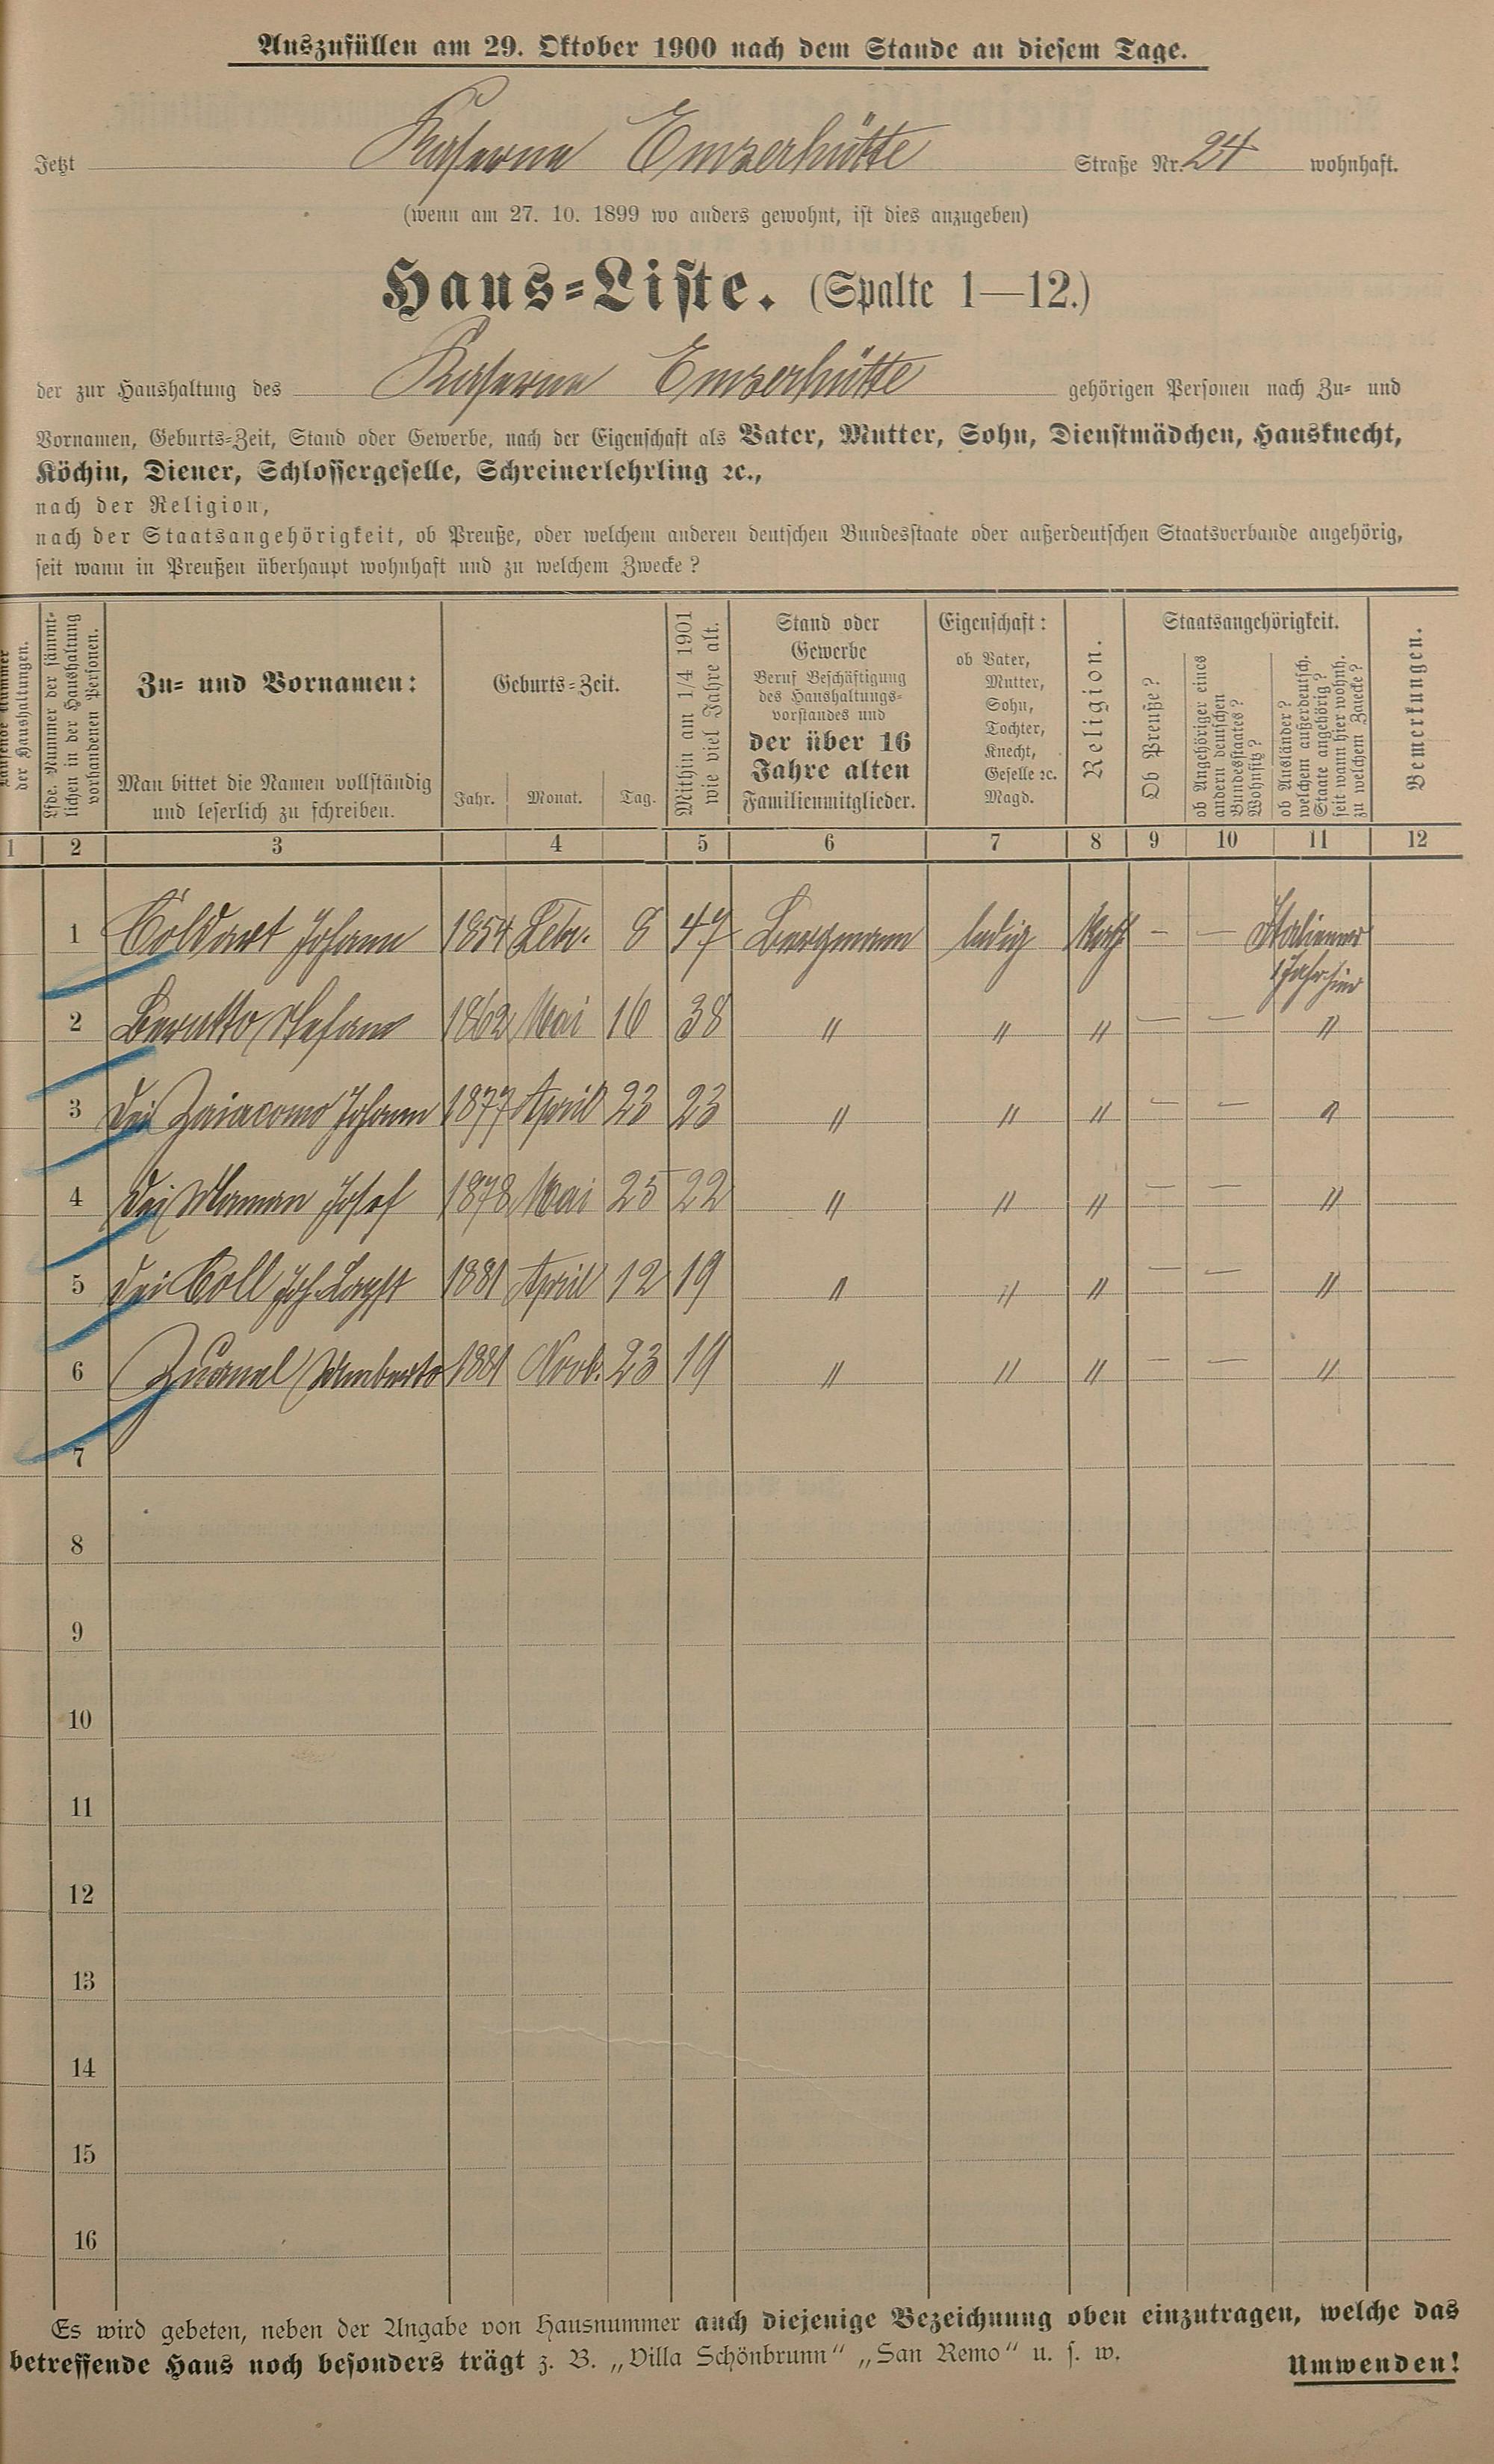 Auszufüllen am 29. Oktober 1900 nach dem Stande an diesem Tage.
Jetzt Kaserne Emserhütte Straße Nr. 24 wohnhaft.
(wenn am 27. 10. 1899 wo anders gewohnt, ist dies anzugeben)
Haus-Liste. (Spalte 1—12.)
der zur Haushaltung des Kaserne Emserhütte gehörigen Personen nach Zu- und
Vornamen, Geburts-Zeit, Stand oder Gewerbe, nach der Eigenschaft als Vater, Mutter, Sohn, Dienstmädchen, Hausknecht,
Köchin, Diener, Schlossergeselle, Schreinerlehrling ꝛc.,
nach der Religion,
nach der Staatsangehörigkeit, ob Preuße, oder welchem anderen deutschen Bundesstaate oder außerdeutschen Staatsverbande angehörig,
seit wann in Preußen überhaupt wohnhaft und zu welchem Zwecke?
Laufende Nummer
der Haushaltungen.
Lfde. Nummer der sämmt-
lichen in der Haushaltung
vorhandenen Personen.
Zu- und Vornamen:
Man bittet die Namen vollständig
und leserlich zu schreiben.
Geburts-Zeit.
Jahr. Monat. Tag.
Mithin am 1/4 1901
wie viel Jahre alt.
Stand oder
Gewerbe
Beruf Beschäftigung
des Haushaltungs-
vorstandes und
der über 16
Jahre alten
Familienmitglieder.
Eigenschaft:
ob Vater,
Mutter,
Sohn,
Tochter,
Knecht,
Geselle ꝛc.
Magd.
Religion.
Staatsangehörigkeit.
Ob Preuße?
ob Angehöriger eines
andern deutschen
Bundesstaates?
Wohnsitz?
ob Ausländer?
welchem außerdeutsch.
Staate angehörig?
seit wann hier wohnh.
zu welchem Zwecke?
Bemerkungen.
1 2 3 4 5 6 7 8 9 10 11 12
1 Coldart Johann 1854 Febr. 8 47 Bergmann ledig Kath — — Italiener
1 Jahr hier
2 Berutto Stefano 1862 Mai 16 38 " " " — — "
3 Dei Zaiacomo Johann 1877 April 23 23 " " " — — "
4 Dei Josef 1878 Mai 25 22 " " " — — "
5 Dei Coll Joh. 1881 April 12 19 " " " — — "
6 Zuanel Umberto 1881 Novb. 23 19 " " " — — "
7
8
9
10
11
12
13
14
15
16
Es wird gebeten, neben der Angabe von Hausnummer auch diejenige Bezeichnung oben einzutragen, welche das
betreffende Haus noch besonders trägt z. B. „Villa Schönbrunn" „San Remo" u. s. w.
Umwenden!